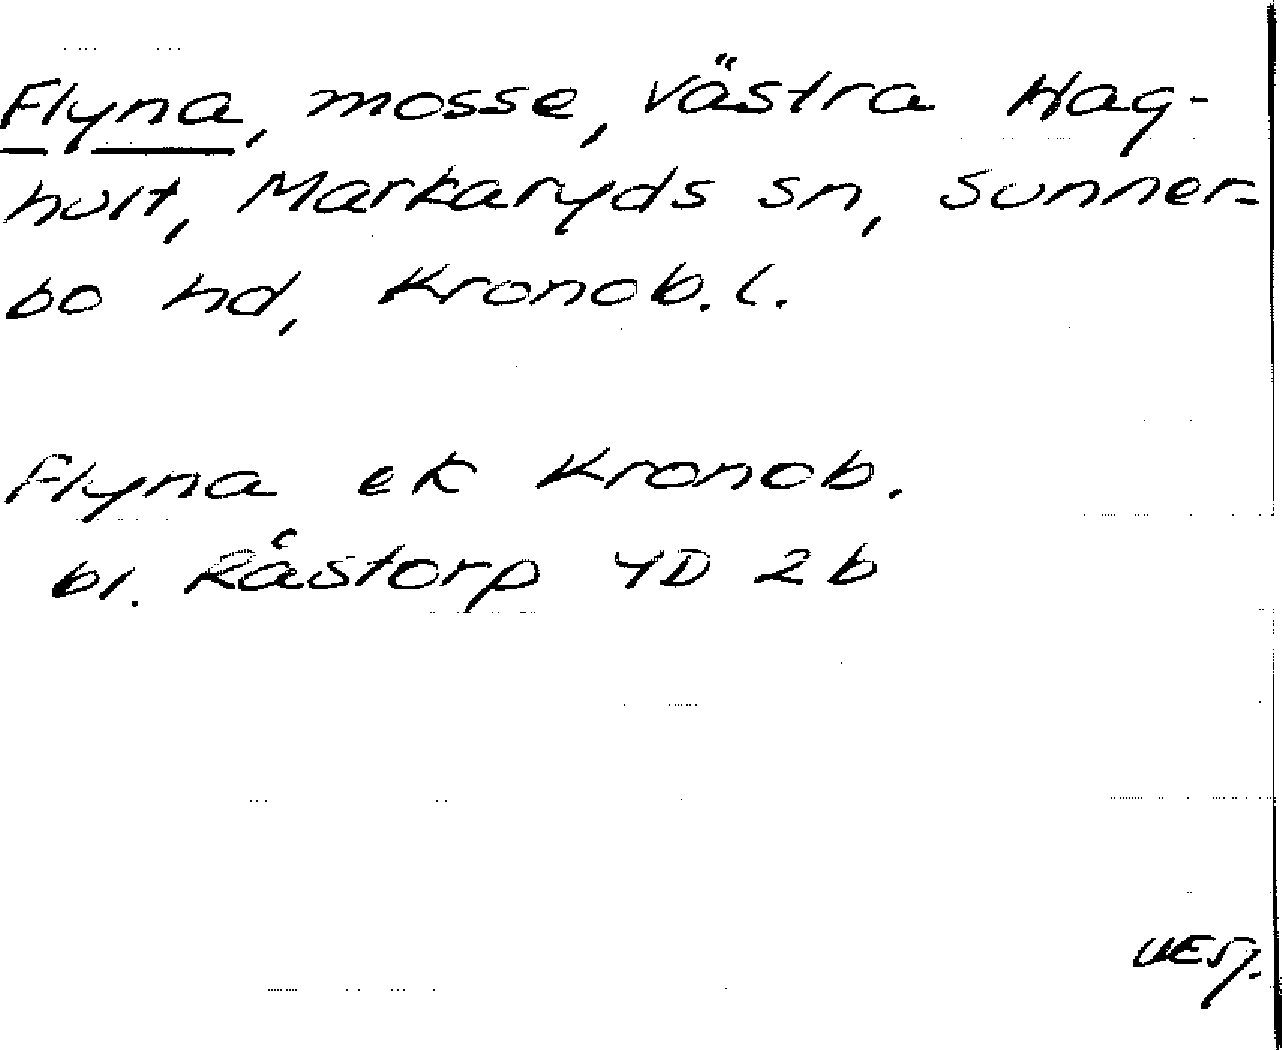 Flyna, mosse, västra Hag-
hult, Markaryds sn, Sunner-
bo hd, Kronob. l.
Flyna ek Kronob.
bl. Råstorp 4D 2b